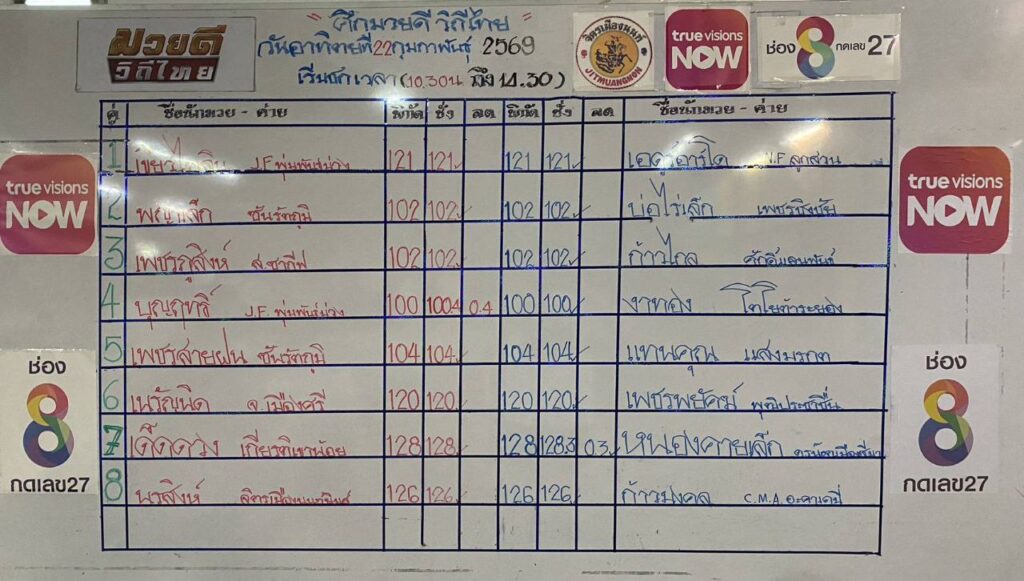 มวยดี
วิถีไทย
" ศึกมวยดี วิถีไทย "
วันอาทิตย์ที่ 22 กุมภาพันธ์ 2569
เริ่มชกเวลา (10.30น ถึง 12.30)
JITMUANGNON
true visions
NOW
ช่อง 8 กดเลข 27
คู่ ชื่อนักมวย - ค่าย พิกัด ชั่ง ลด พิกัด ชั่ง ลด ชื่อนักมวย - ค่าย
1 J.F. พุ่มพันธ์ม่วง 121 121 121 121 เอดูอาร์โด ลูกสวน
2 พญาเล็ก ชันรัตภูมิ 102 102 102 102 บ่อไร่เล็ก
3 เพชรภูสิงห์ ส.ซากีฟ 102 102 102 102 ก้าวไกล
4 บุญฤทธิ์ J.F. พุ่มพันธ์ม่วง 100 100.4 0.4 100 100 งาทอง โตโยต้าระยอง
5 เพชรสายฝน ชันรัตภูมิ 104 104 104 104 แทนคุณ แสงมรกต
6 จ.เมืองศรี 120 120 120 120 เพชรพยัคฆ์
7 เด็ดดวง เกี่ยวทีเขาน้อย 128 128 128 128.3 0.3 หนองคายเล็ก
8 นรสิงห์ 126 126 126 126 ก้าวมงคล C.M.A. อะคาเดมี่
true visions
NOW
true visions
NOW
ช่อง
8
กดเลข27
ช่อง
8
กดเลข27